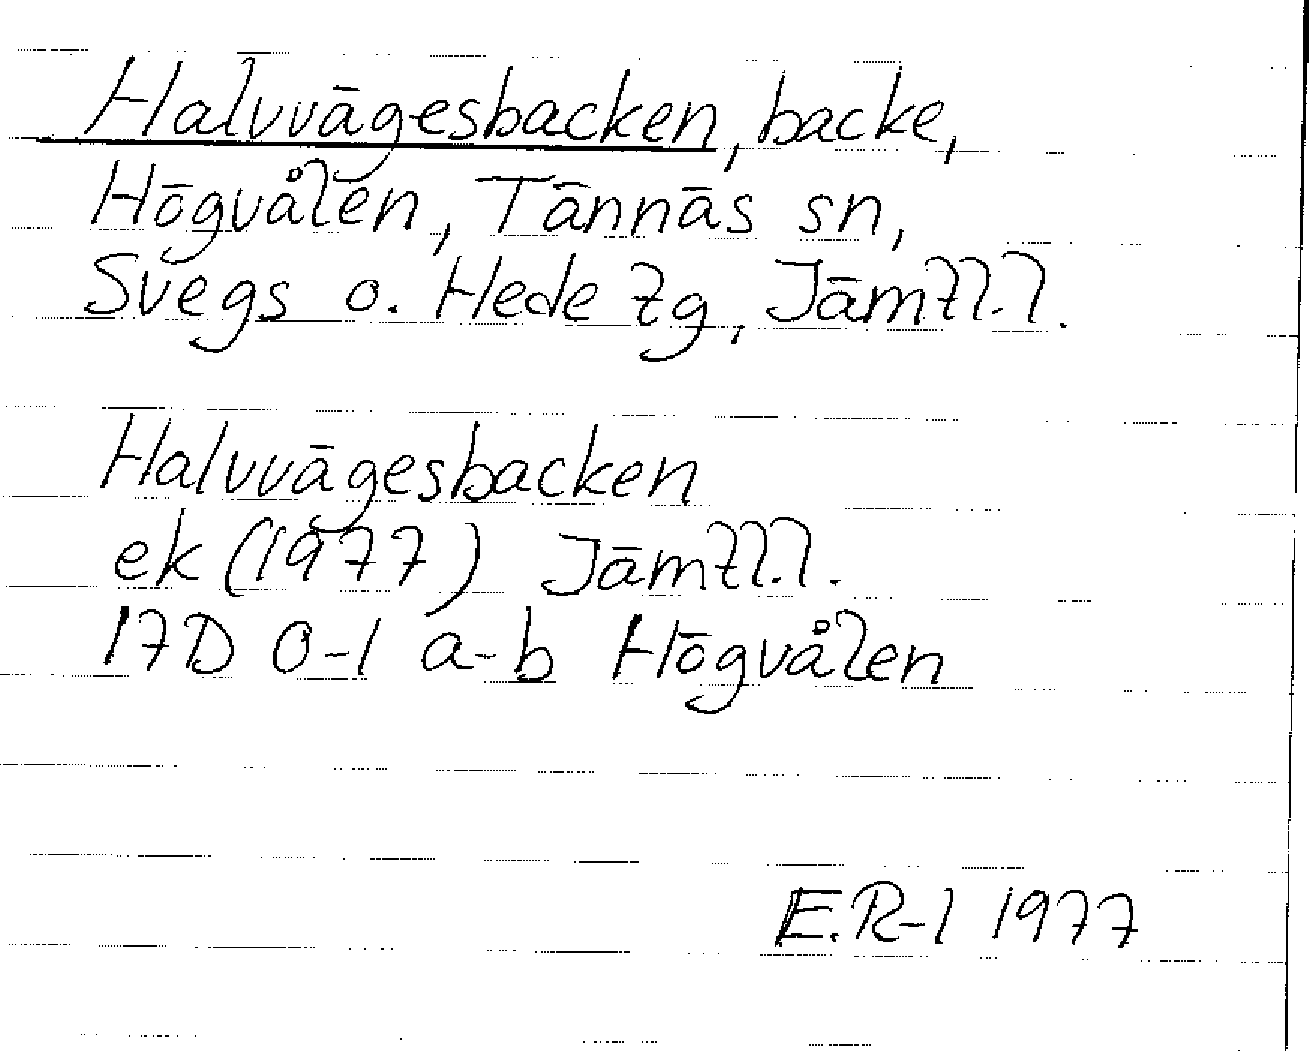 Halvvägesbacken, backe,
Högvålen, Tännäs sn,
Svegs o. Hede tg, Jämtl.l.
Halvvägesbacken
ek (1977) Jämtl.l.
17D 0-1 a-b Högvålen
E.R-l 1977